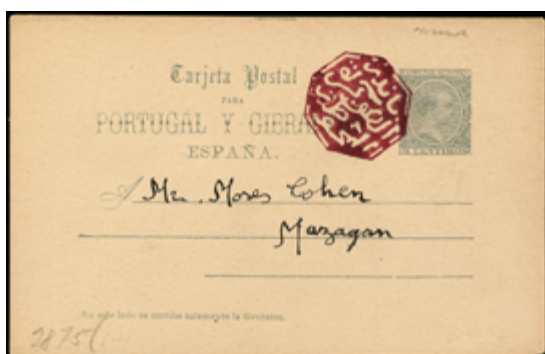 Tarjeta Postal
PARA
PORTUGAL Y GIBRA
ESPAÑA.
A Mr. Moses Cohen
Mazagan
En este lado se escribe solamente la direccion.
2875